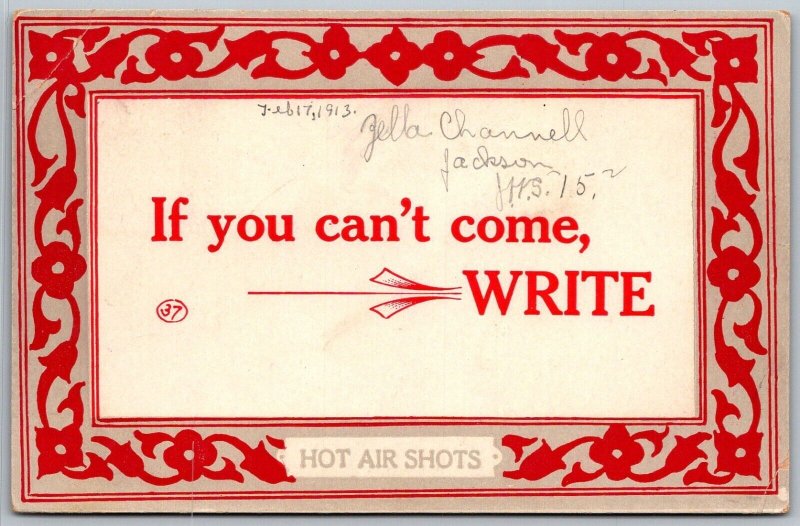 Feb 17, 1913.
Zella Channell
Jackson
J.H.S. '15.
If you can't come,
WRITE
37
HOT AIR SHOTS